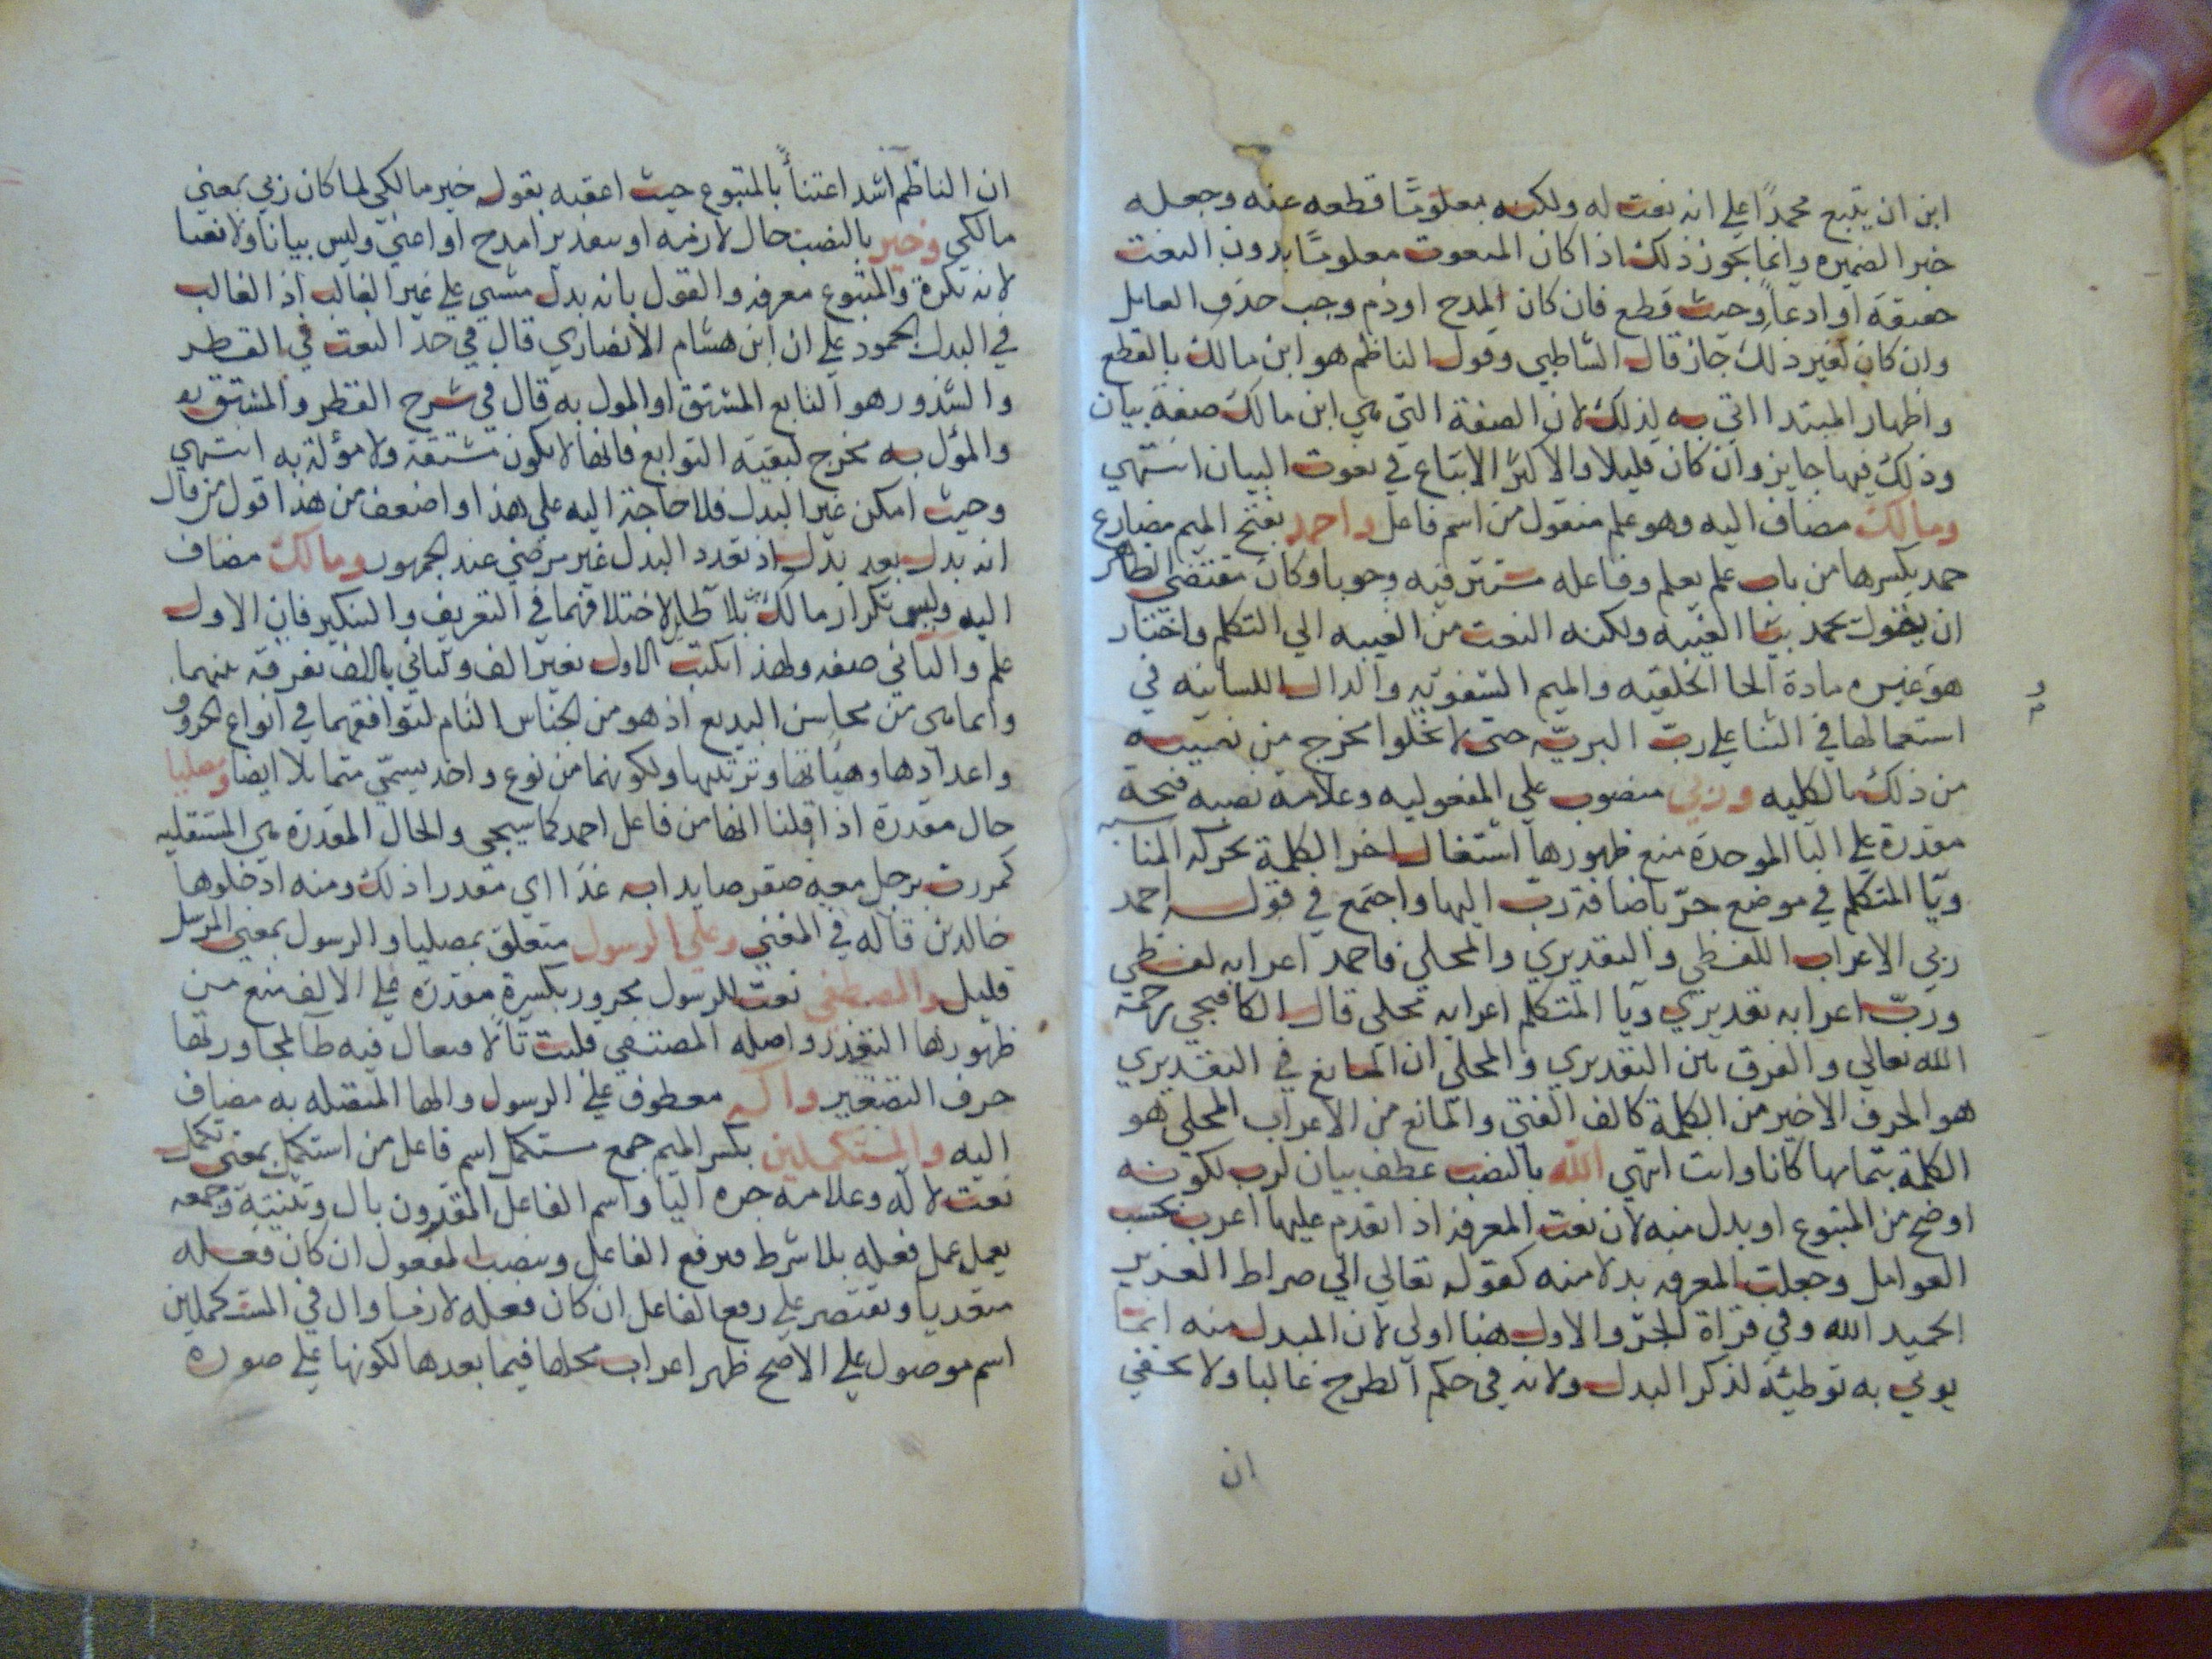 ابن ان يتبع محمدًا على انه نعت له ولكنه معلومًا قطعه عنه وجعله
خبر الضميره وانما يجوز ذلك اذا كان المنعوت معلومًا بدون النعت
حقيقة او ادعاً وحيث قطع فان كان المدح او ذم وجب حذف العامل
وان كان لغير ذلك جاز قال الشاطبي وقول الناظم هو ابن مالك بالقطع
واظهار المبتدا اتى به لذلك لان الصفة التي هي ابن مالك صفة بيان
وذلك فيها جايز وان كان قليلا والاكثر الاتباع في نعوت البيان انتهي
ومالك مضاف اليه وهو علم منقول من اسم فاعل واحمد بفتح الميم مضارع
حمد بكسرها من باب علم يعلم وفاعله مستتر فيه وجوبا وكان مقتضى الظاهر
ان يقول يحمد بيا الغيبه ولكنه التفت من الغيبه الي التكلم واختار
هو غيره مادة الحا الحلقيه والميم الشفويه والدال اللسانيه في
استعمالها في الثنا على رب البريه حتى لا تخلوا مخرج من نصيبه
من ذلك بالكليه وربي منصوب على المفعوليه وعلامة نصبه فتحة
مقدرة على البا الموحدة منع ظهورها اشتغال اخر الكلمة بحركه المناسبه
ويا المتكلم في موضع جر باضافة رب اليها واجتمع في قوله احمد
ربي الاعراب اللفظي والتقديري والمحلي فاحمد اعرابه لفظي
ورب اعرابه تقديري ويا المتكلم اعرابه محلي قال الكافيجي رحمه
الله تعالي والفرق بين التقديري والمحلي ان المانع في التقديري
هو الحرف الاخير من الكلمة كالف الفتى والمانع من الاعراب المحلي هو
الكلمة بتمامها كانا وانت انتهي الله بالنصب عطف بيان لرب لكونه
اوضح من المتبوع او بدل منه لان نعت المعرفه اذا تقدم عليها اعرب بحسب
العوامل وجعلت المعرفه بدلا منه كقوله تعالي الي صراط العزيز
الحميد الله وفي قراة الجر والاول هنا اولى لان المبدل منه انما
يوتي به توطيئة لذكر البدل ولانه في حكم الطرح غالبا ولا يخفي
ان
ان الناظم اشد اعتناً بالمتبوع حيث اعقبه بقوله خير مالكي لما كان ربي بمعني
مالكي وخير بالنصب حال لازمه او بتقدير امدح او اعني وليس بيانا ولا نعتا
لانه نكرة والمتبوع معرفه والقول بانه بدل مشي علي غير الغالب اذ الغالب
في البدل الجمود على ان ابن هشام الانصاري قال في حد النعت في القطر
والشذور هو التابع المشتق او المول به قال في شرح القطر والمشتق
والمؤل به مخرج لبقية التوابع فانها لا يكون مشتقة ولا مؤلة به انتهي
وحيث امكن غير البدل فلا حاجة اليه علي هذا واضعف من هذا قول من قال
انه بدل بعد بدل اذ تعدد البدل غير مرضي عند الجمهور ومالك مضاف
اليه وليس تكرار مالك ايطا لاختلافهما في التعريف والتنكير فان الاول
علم والثاني صفه ولهذا اكتب الاول بغير الف والثاني بالالف تفرقة بينهما
وانما هي من محاسن البديع اذ هو من الجناس التام لتوافقهما في انواع الحروف
واعدادها وهياتها وترتيبها ولكونهما من نوع واحد يسمي متماثلا ايضا ومصليا
حال مقدرة اذا قلنا انها من فاعل احمد كما سيجي والحال المقدرة هي المستقبليه
كمررت برجل معه صقر صايدا به غدًا اي مقدرا ذلك ومنه ادخلوها
خالدين قاله في المغني وعلى الرسول متعلق بمصليا والرسول بمعني المرسل
قليل والمصطفى نعت للرسول مجرور بكسرة مقدرة علي الالف منع من
ظهورها التعذر واصله المصتفي قلبت تا الافتعال فيه طا لمجاورتها
حرف التصغير واله معطوف على الرسول والها المتصله به مضاف
اليه والمستكملين بكسر الميم جمع مستكمل اسم فاعل من استكمل بمعني تكمل
نعت لاله وعلامه جره اليا واسم الفاعل المقرون بال وتثنيته وجمعه
يعمل عمل فعله بلا شرط فيرفع الفاعل وينصب المفعول ان كان فعله
متعديا ويقتصر علي رفع الفاعل ان كان فعله لازما وال في المستكملين
اسم موصول علي الاصح ظهر اعراب محلها فيما بعدها لكونها علي صورة